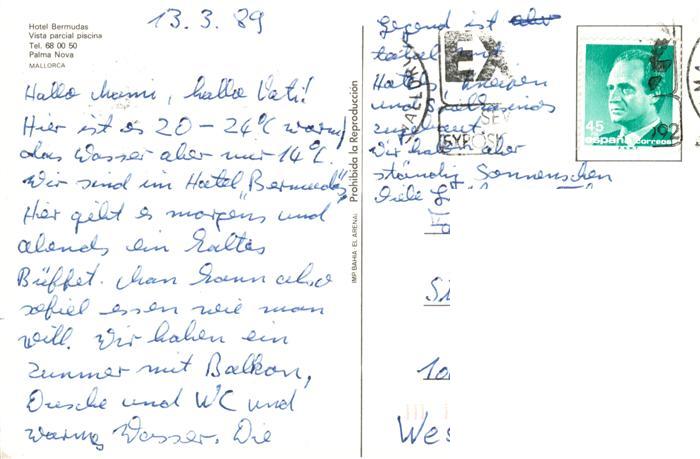 Hotel Bermudas
Vista parcial piscina
Tel. 68 00 50
Palma Nova
MALLORCA
13.3.89
Hallo Mami, hallo Vati!
Hier ist es 20 – 24°C warm,
das Wasser aber nur 14°C.
Wir sind im Hotel „Bermudas“,
Hier gibt es morgens und
abends ein kaltes
Büffet. Man kann also
sofiel essen wie man
will. Wir haben ein
Zimmer mit Balkon,
Dusche und WC und
warmes Wasser. Die
Gegend ist
total mit
Hotel
und
zugebaut
Wir haben aber
ständig Sonnenschein
Viele
Prohibida la Reproducción
IMP. BAHIA EL ARENAL
EX
EXPO
92
45
españa correos
Si
Wes